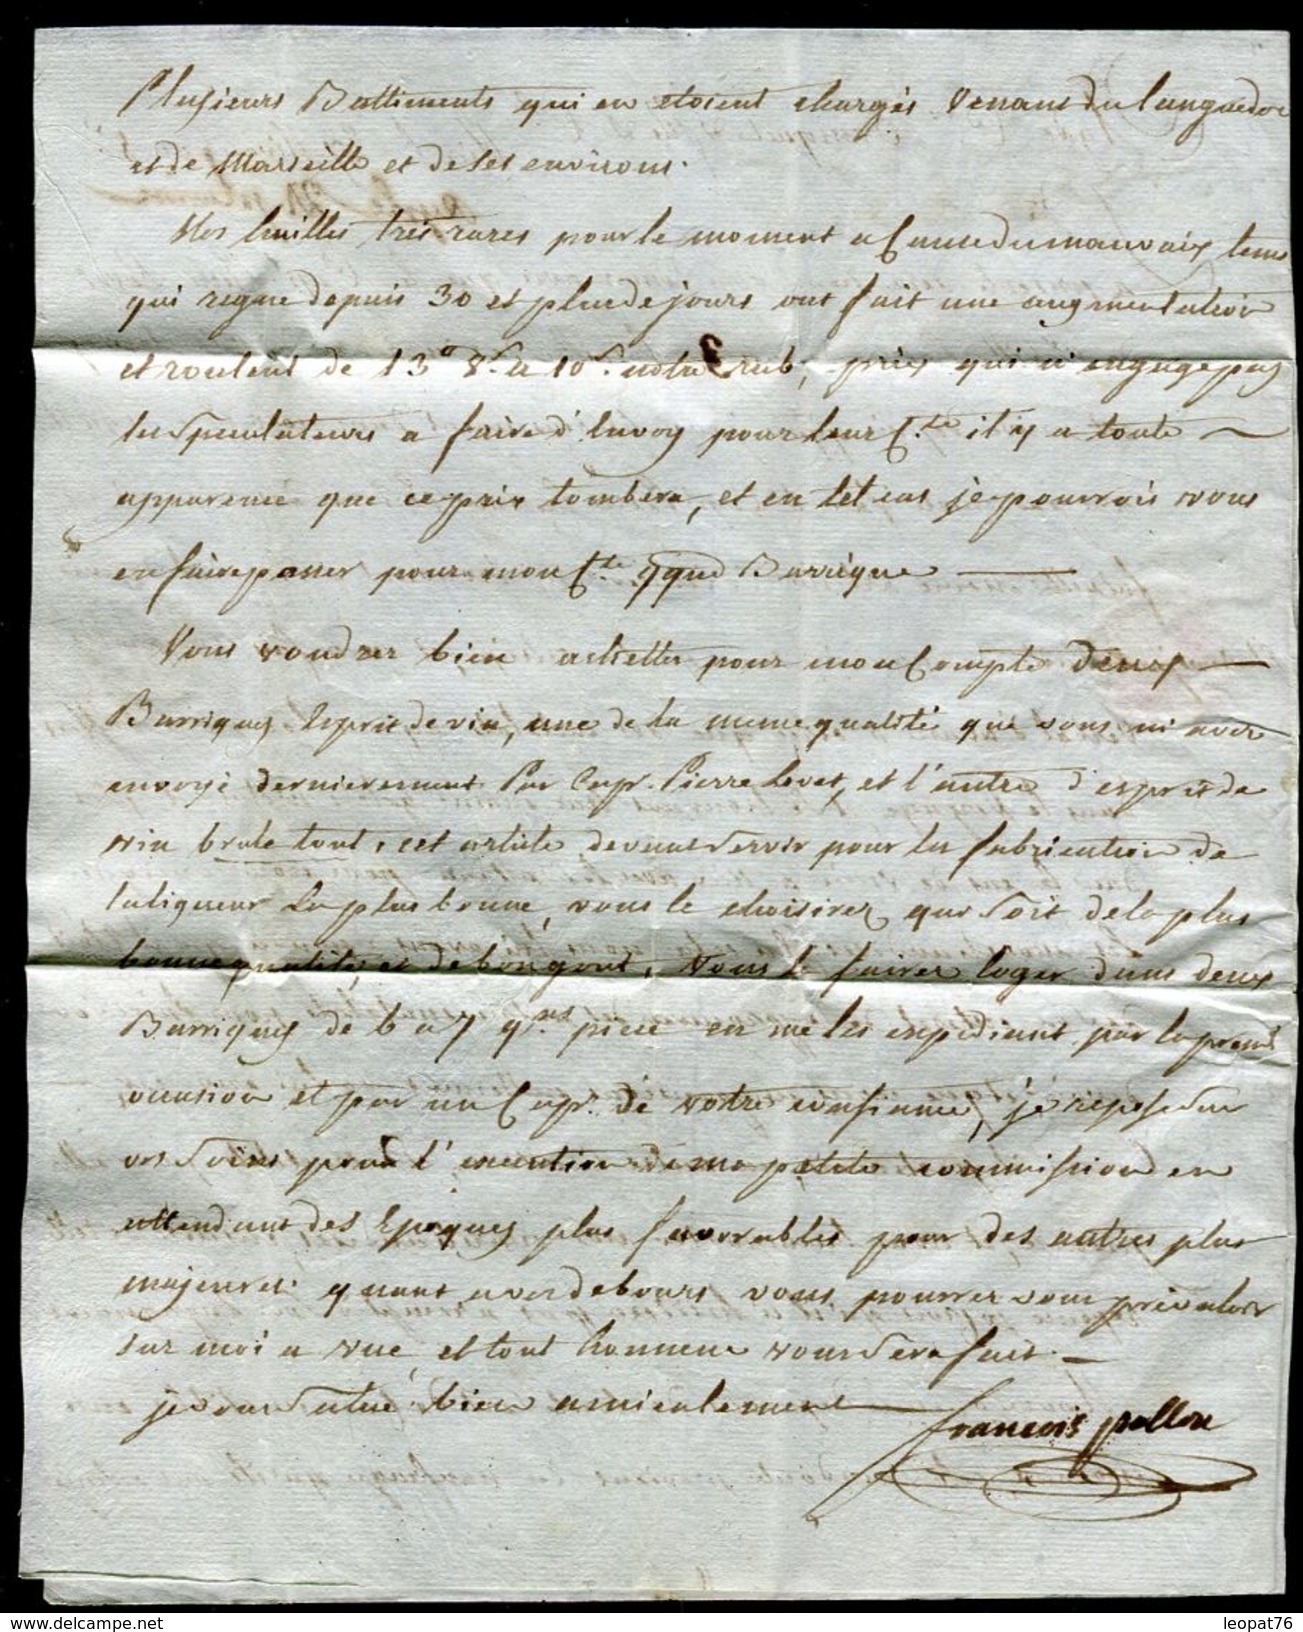 Plusieurs Battiments qui en etoient chargés venans du languedoc
et de Marseille et de ses environs.
Nos huilles très rares pour le moment a Cause du mauvaix tems
qui regne depuis 30 et plus de jours ont fait une augmentation
et roulent de 13# 8s a 10s notre rub, prix qui n'engage pas
les speculateurs a faire d'Envoy pour leur Cte il y a toute
apparence que ce prix tombera, et en cet cas je pourrois vous
en faire passer pour mon Cte qque Barrique
Vous voudrez bien achetter pour mon Compte deux
Barriques Esprit de vin, une de la meme qualité que vous m'avez
envoyé dernierement Par Capn. Pierre Levet, et l'autre d'esprit de
vin brule tout, cet article devant servir pour la fabrication de
la liqueur la plus bonne, vous le choisirez que soit de la plus
bonne qualité, et de bon gout, Vous le fairez loger dans deux
Barriques de 6 a 7 qns piece en me les expediant par la premre
occasion et par un Capn. de votre confiance, je repose sur
vos soins pour l'execution de ma petite commission en
attendant des Epoques plus favorables pour des autres plus
majeures. quant a vos debours vous pourrez vous prevaloir
sur moi a vue, et tout honneur vous sera fait.
je vous salue bien amicalement
françois pallon
leopat76
www.delcampe.net